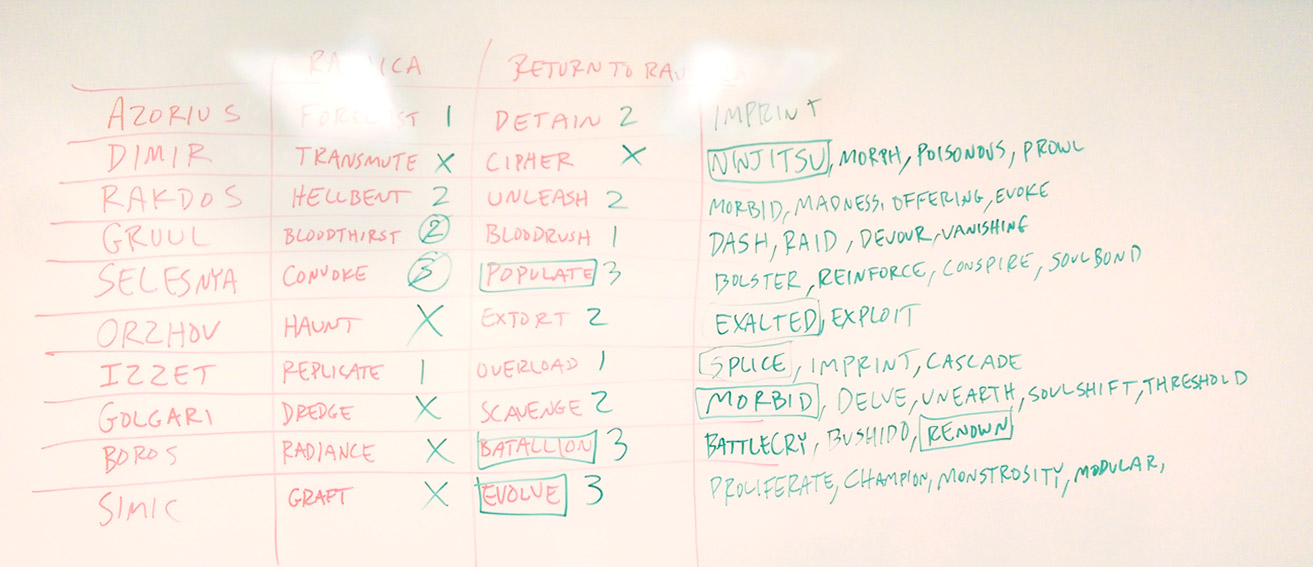 RAVNICA RETURN TO RAV
AZORIUS FORECAST 1 DETAIN 2 IMPRINT
DIMIR TRANSMUTE X CIPHER X NINJITSU, MORPH, POISONOUS, PROWL
RAKDOS HELLBENT 2 UNLEASH 2 MORBID, MADNESS, OFFERING, EVOKE
GRUUL BLOODTHIRST 2 BLOODRUSH 1 DASH, RAID, DEVOUR, VANISHING
SELESNYA CONVOKE POPULATE 3 BOLSTER, REINFORCE, CONSPIRE, SOULBOND
ORZHOV HAUNT X EXTORT 2 EXALTED, EXPLOIT
IZZET REPLICATE 1 OVERLOAD 1 SPLICE, IMPRINT, CASCADE
GOLGARI DREDGE X SCAVENGE 2 MORBID, DELVE, UNEARTH, SOULSHIFT, THRESHOLD
BOROS RADIANCE X BATALLION 3 BATTLECRY, BUSHIDO, RENOWN
SIMIC GRAFT X EVOLVE 3 PROLIFERATE, CHAMPION, MONSTROSITY, MODULAR,